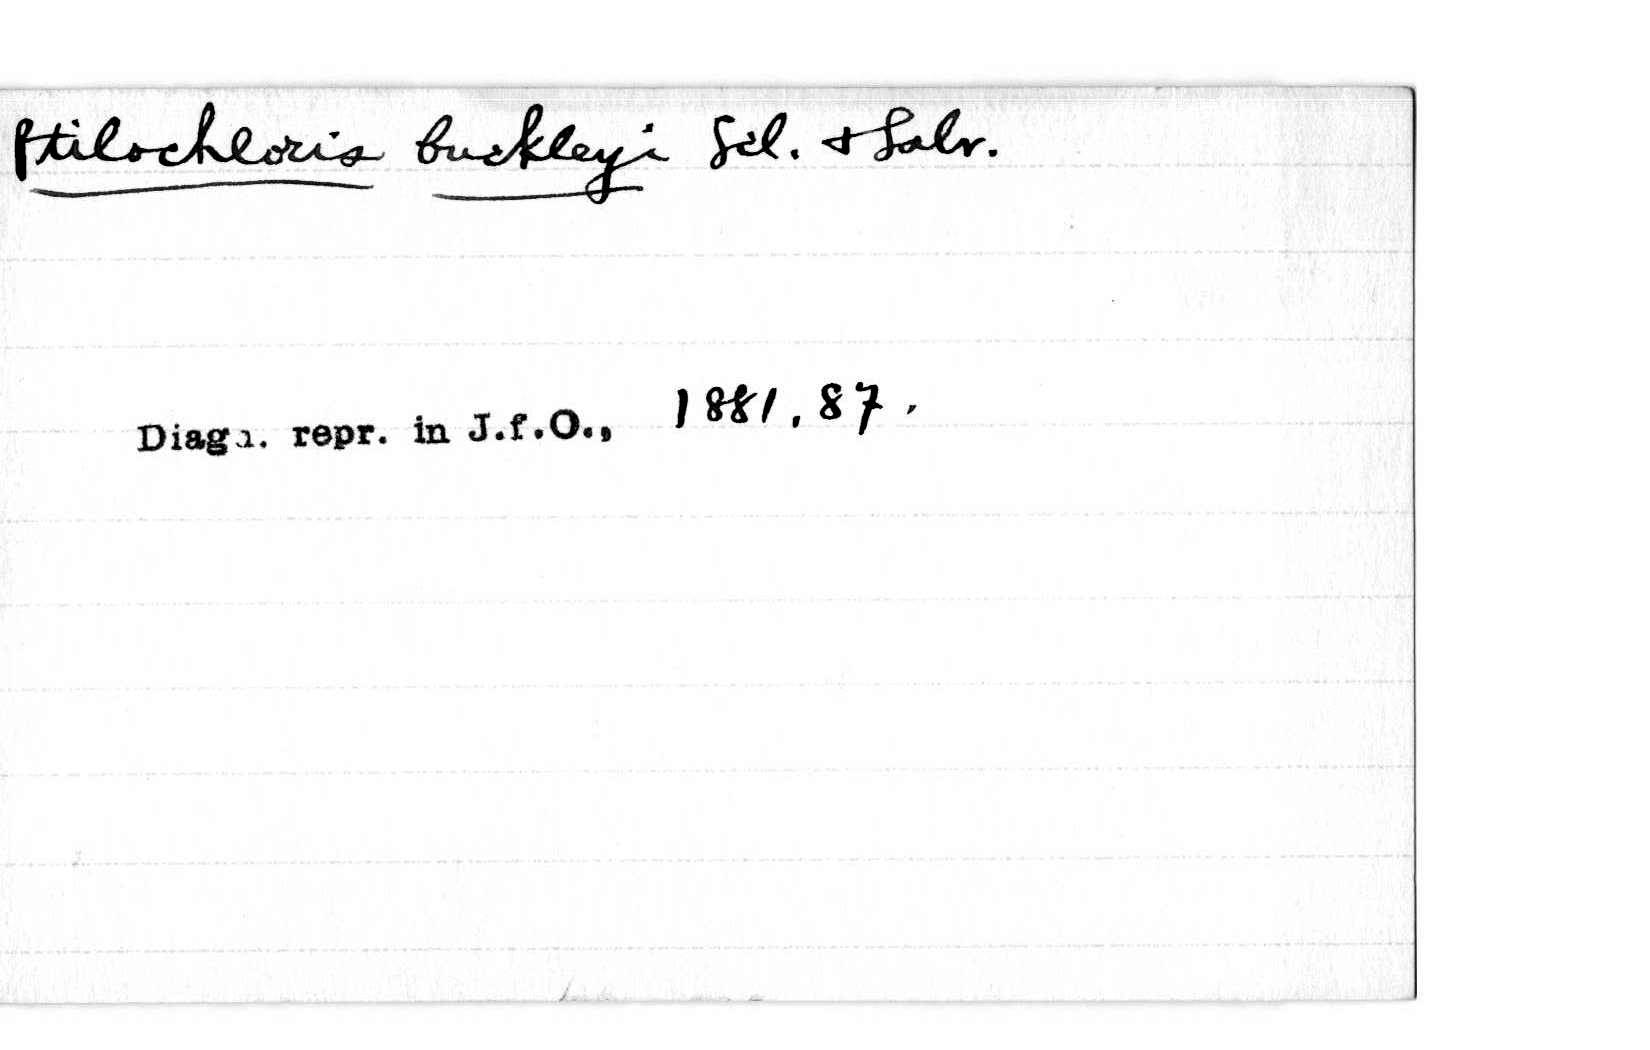 Ptilochloris buckleyi Scl. & Salv.
Diagn. repr. in J.f.O., 1881, 87.